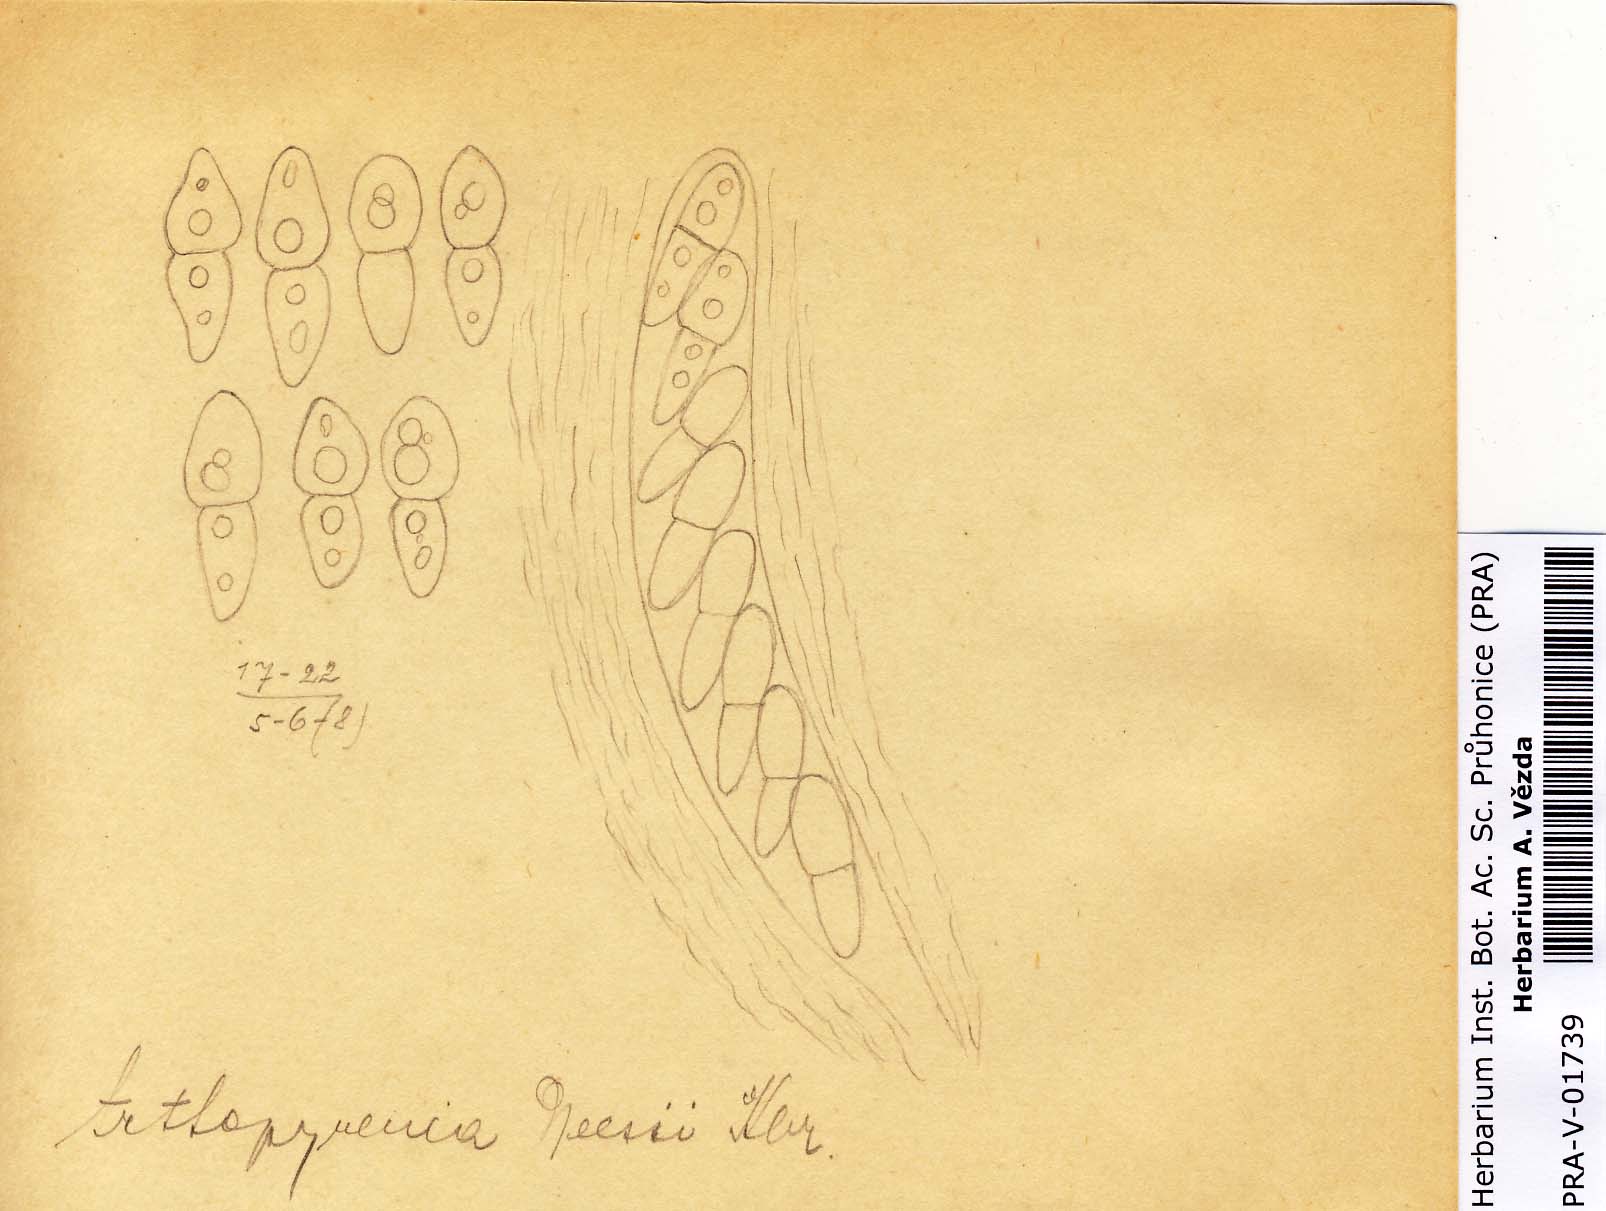 17-22
5-6-(8)
Arthopyrenia Neesii Kbr.
Herbarium Inst. Bot. Ac. Sc. Průhonice (PRA)
Herbarium A. Vězda
PRA-V-01739